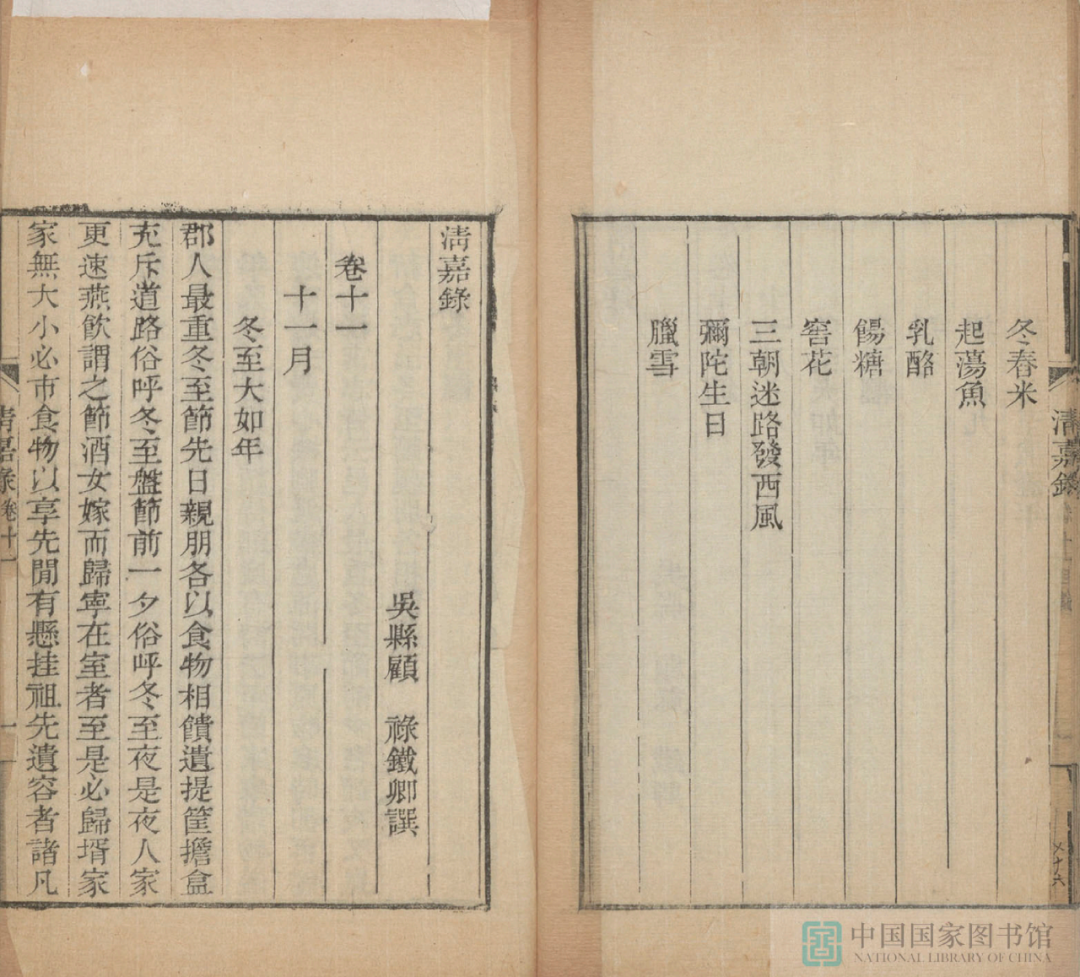 冬舂米
起蕩魚
乳酪
餳糖
窖花
三朝迷路發西風
彌陀生日
臘雪
清嘉錄
清嘉錄
吳縣顧 祿鐵卿譔
卷十一
十一月
冬至大如年
郡人最重冬至節先日親朋各以食物相饋遺提筐擔盒
充斥道路俗呼冬至盤節前一夕俗呼冬至夜是夜人家
更速燕飲謂之節酒女嫁而歸寧在室者至是必歸壻家
家無大小必市食物以享先間有懸挂祖先遺容者諸凡
清嘉錄卷十一 一
中国国家图书馆
NATIONAL LIBRARY OF CHINA